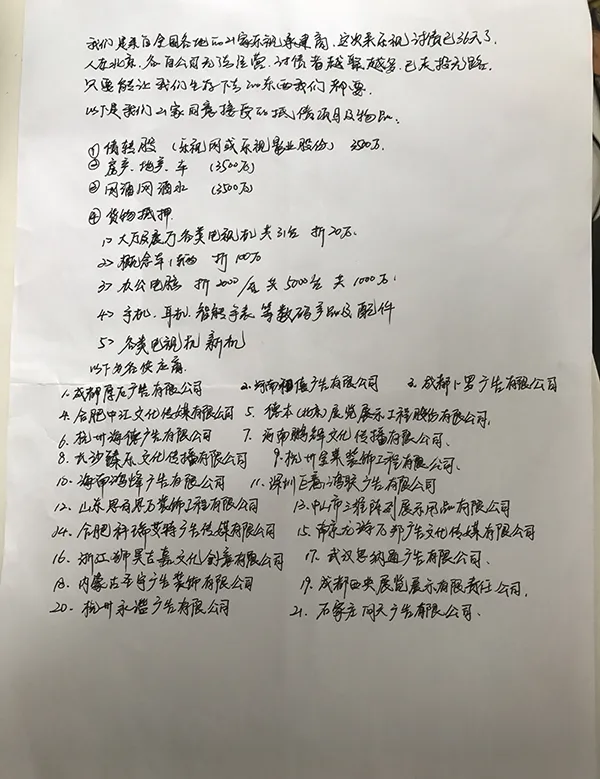 我们是来自全国各地的21家乐视承某商,这次来乐视讨债已36天了,
人在北京,各自公司无法运营,讨债者越聚越多,已走投无路,
只要能让我们生存下去的东西我们都要.
以下是我们21家同意接受的抵债项目及物品:
①债转股 (乐视网或乐视影业股份) 3500万.
②房产、地产、车 (3500万)
③网酒网酒水 (3500万)
④货物抵押
1>大厅及展厅各类电视机共31台 折20万.
2>概念车1辆 折100万
3>办公电脑 折2000/台 共5000台 共1000万.
4>手机、耳机、智能手表 等数码产品及配件
5>各类电视机新机
以下为各供应商.
1.成都原石广告有限公司 2.河南福值广告有限公司 3.成都卜罗广告有限公司
4.合肥中江文化传媒有限公司 5.德本(北京)展览展示工程股份有限公司.
6.杭州海德广告有限公司 7.河南鹏辉文化传播有限公司、
8.长沙臻乐文化传播有限公司 9.杭州金果装饰工程有限公司、
10.海南鸿烽广告有限公司 11.深圳巨嘉鸿联广告有限公司
12.山东思百思万装饰工程有限公司 13.中山市三维陈列展示用品有限公司
14.合肥科瑞艾特广告传媒有限公司 15.南京龙游万邦广告文化传媒有限公司
16.浙江狮昊古嘉文化创意有限公司 17.武汉思纳通广告有限公司、
18.内蒙古至宇广告装饰有限公司 19.成都西央展览展示有限责任公司.
20.杭州永谐广告有限公司 21.石家庄问天广告有限公司、